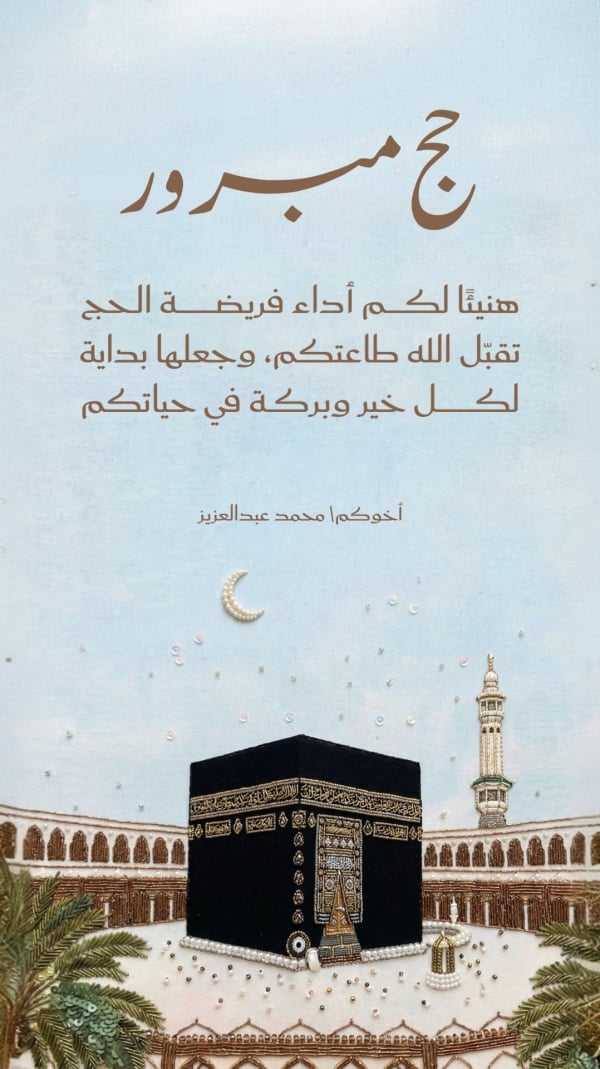 حج مبرور
هنيئًا لكم أداء فريضة الحج
تقبّل الله طاعتكم، وجعلها بداية
لكل خير وبركة في حياتكم
أخوكم\ محمد عبدالعزيز